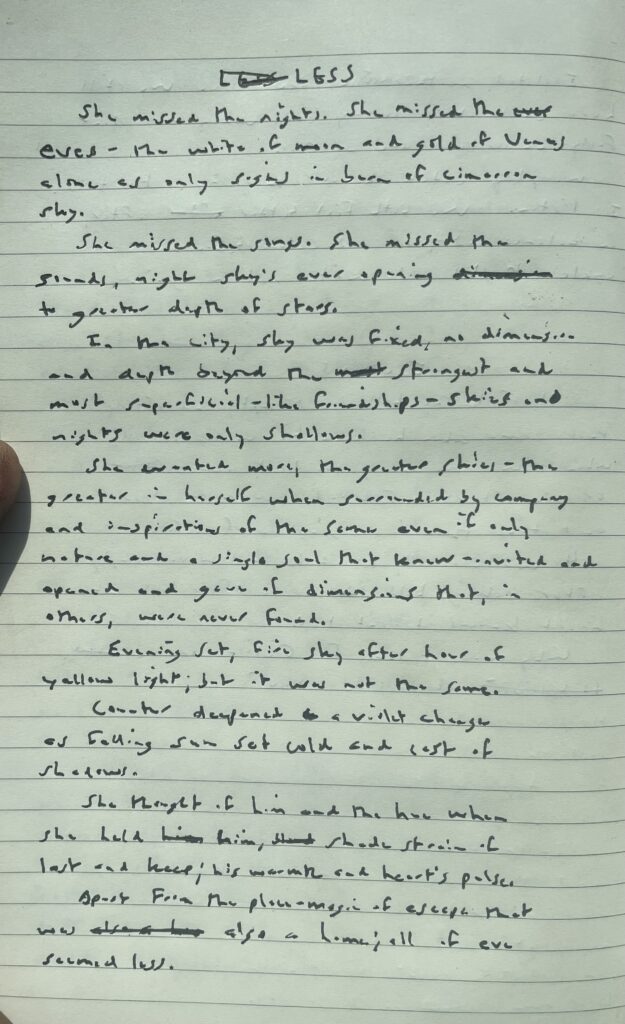 LESS
She missed the nights. She missed the
eves - the white of moon and gold of Venus
alone as only signs in burn of cimarron
sky.
She missed the songs. She missed the
sounds, night sky's ever opening dimension
to greater depth of stars.
In the city, sky was fixed, no dimension
and depth beyond the most strongest and
most superficial - like friendships - skies and
nights were only shallows.
She wanted more, the greater skies - the
greater in herself when surrounded by company
and inspirations of the same even if only
nature and a single soul that knew - invited and
opened and gave of dimensions that, in
others, were never found.
Evening set, fire sky after hour of
yellow light; but it was not the same.
Counter deepened a violet change
as falling sun set cold and cast of
shadows.
She thought of him and the hue when
she held him him, shade strain of
last and keep; his warmth and heart's pulse.
Apart from the place-magic of escape that
was also a home; all of eve
seemed less.